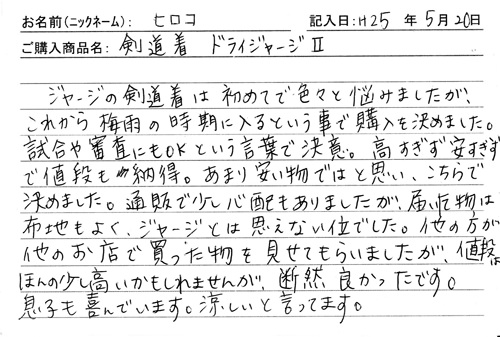 お名前(ニックネーム): ヒロコ 記入日:H25 年 5月 20日
ご購入商品名: 剣道着 ドライジャージⅡ
ジャージの剣道着は初めてで色々と悩みましたが、
これから梅雨の時期に入るという事で購入を決めました。
試合や審査にもOKという言葉で決意。高すぎず安すぎず
で値段も納得。あまり安い物ではと思い、こちらで
決めました。通販で少し心配もありましたが、届いた物は
布地もよく、ジャージとは思えない位でした。他の方が
他のお店で買った物を見せてもらいましたが、値段は
ほんの少し高いかもしれませんが、断然良かったです。
息子も喜んでいます。涼しいと言ってます。